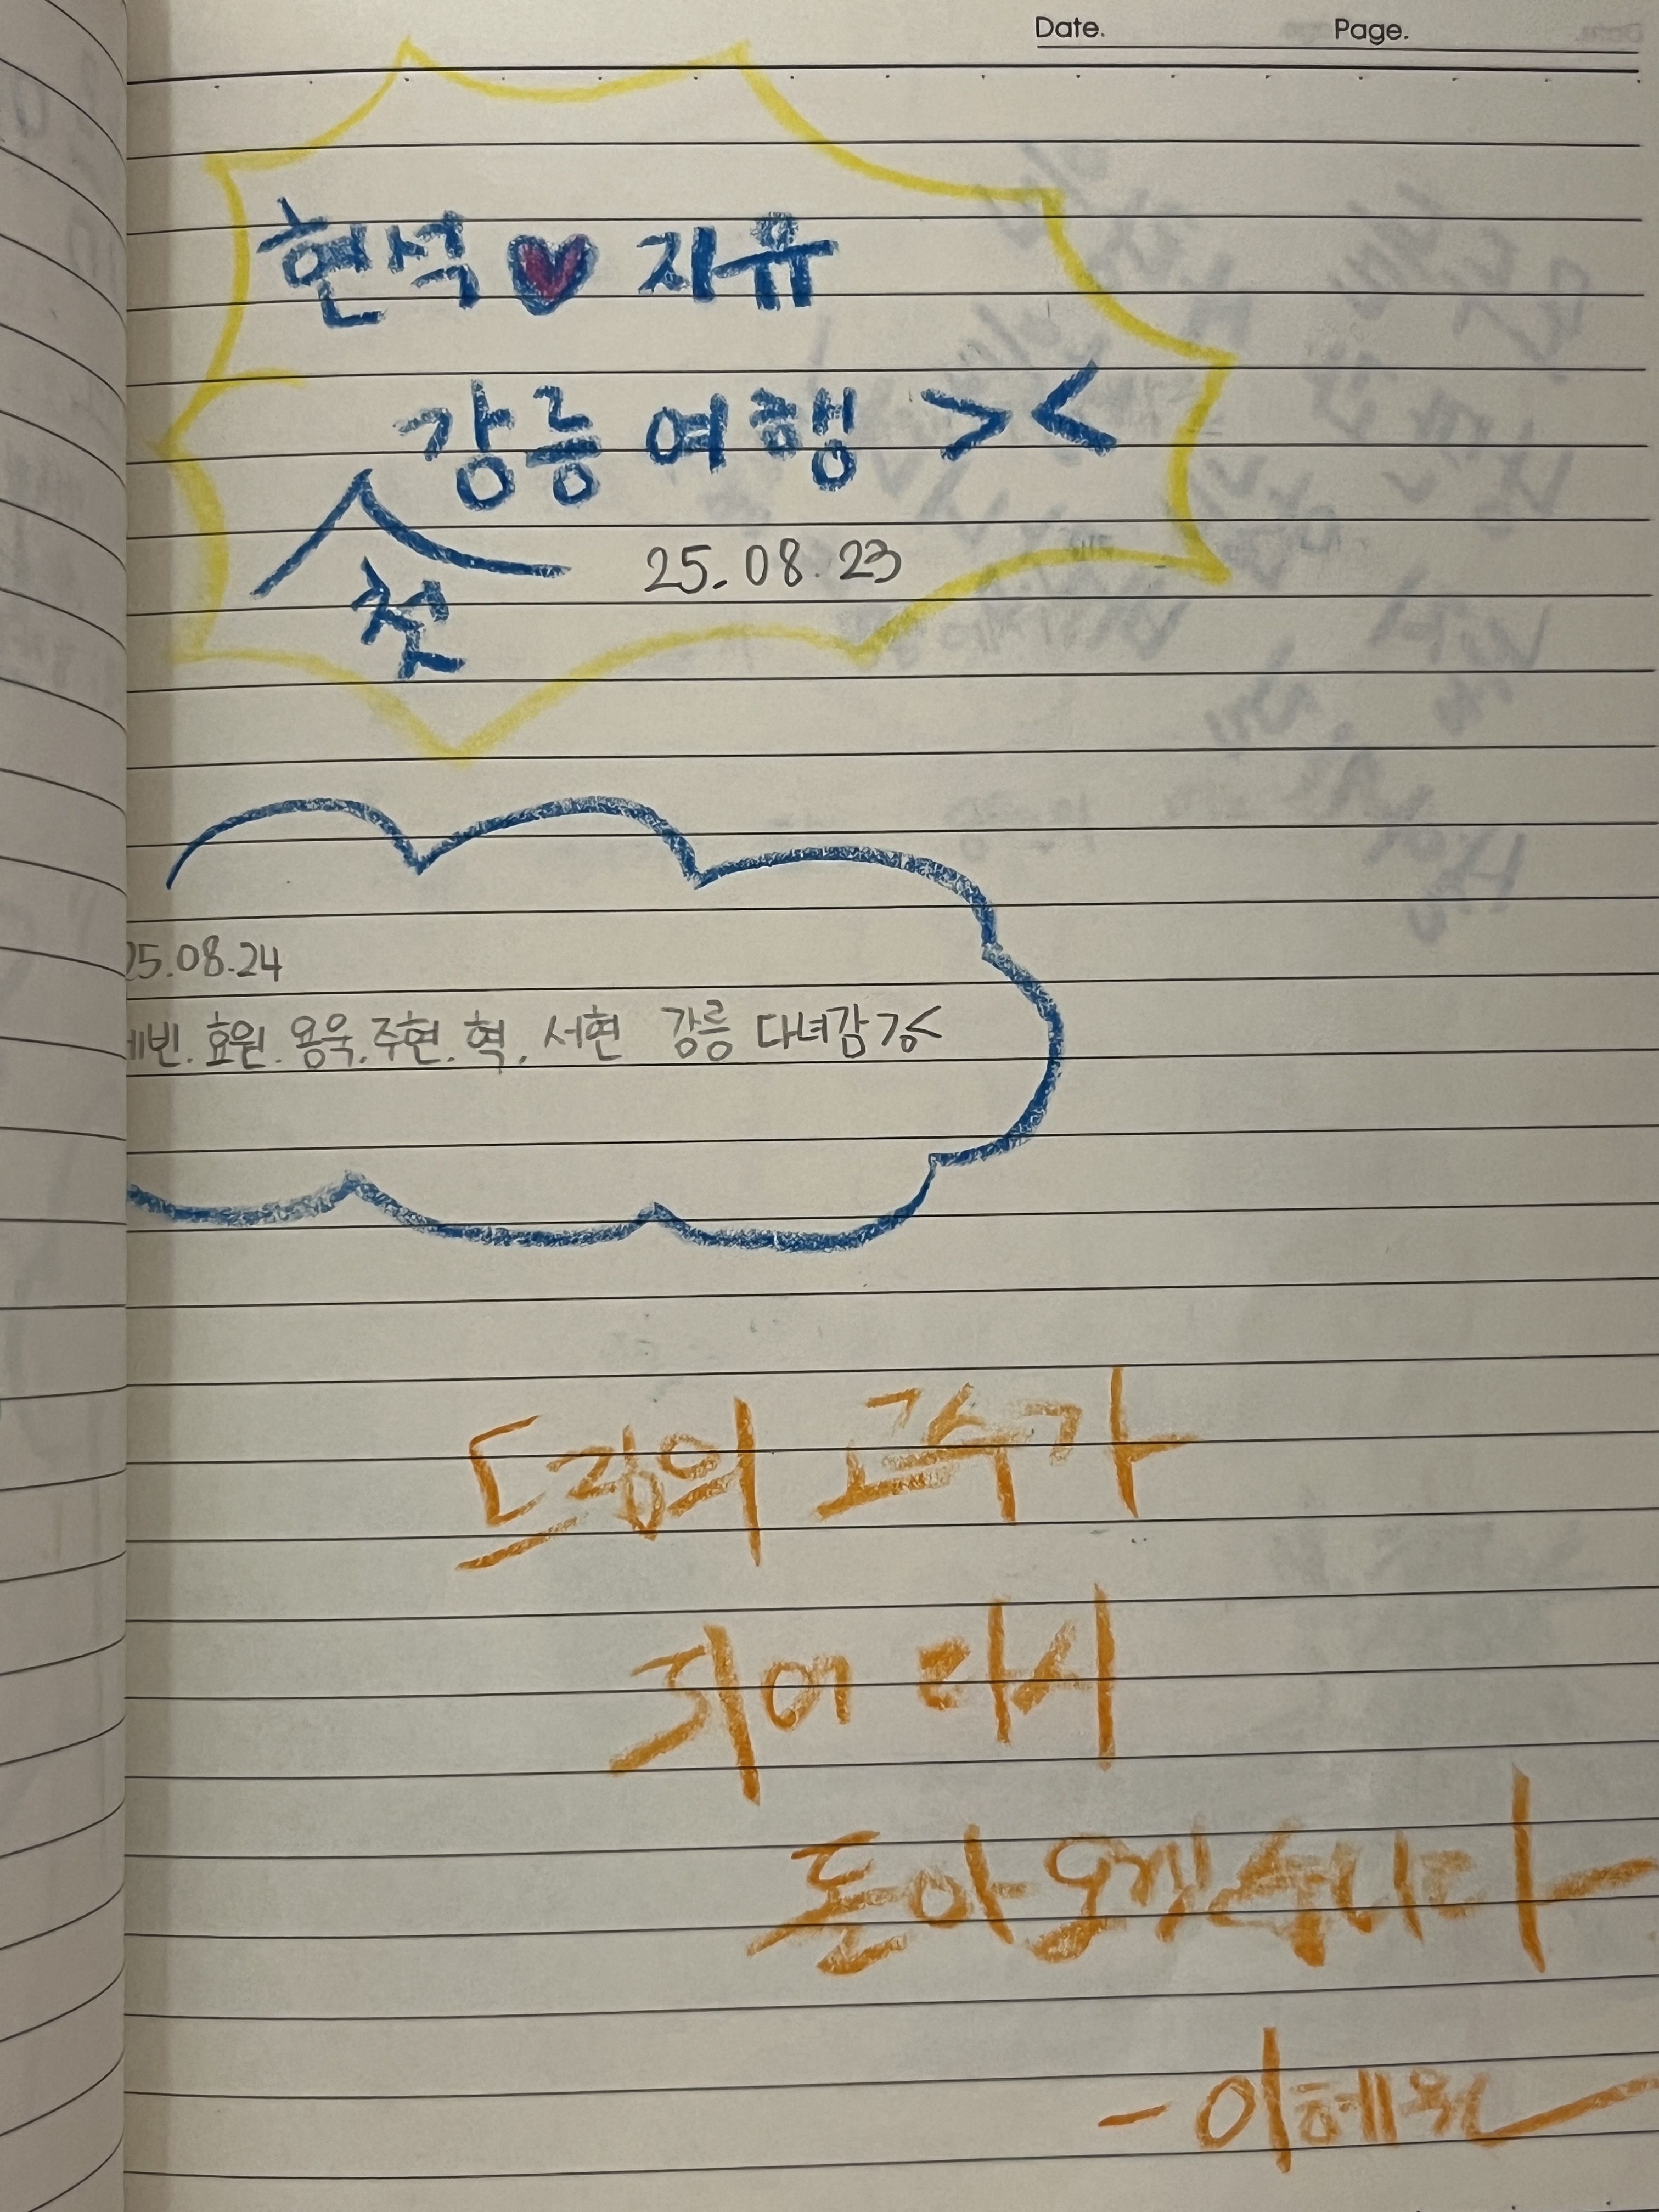 Date. Page.
현석 ♥ 자유
강릉 여행 ><
첫
25.08.23
25.08.24
빈. 효원. 용욱. 주현. 혁. 서현 강릉 다녀감
고수가
되어 다시
돌아오겠습니다
- 이혜원